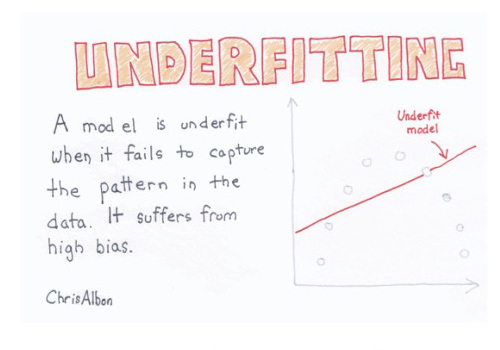 UNDERFITTING
A model is underfit
when it fails to capture
the pattern in the
data. It suffers from
high bias.
ChrisAlbon
Underfit
model